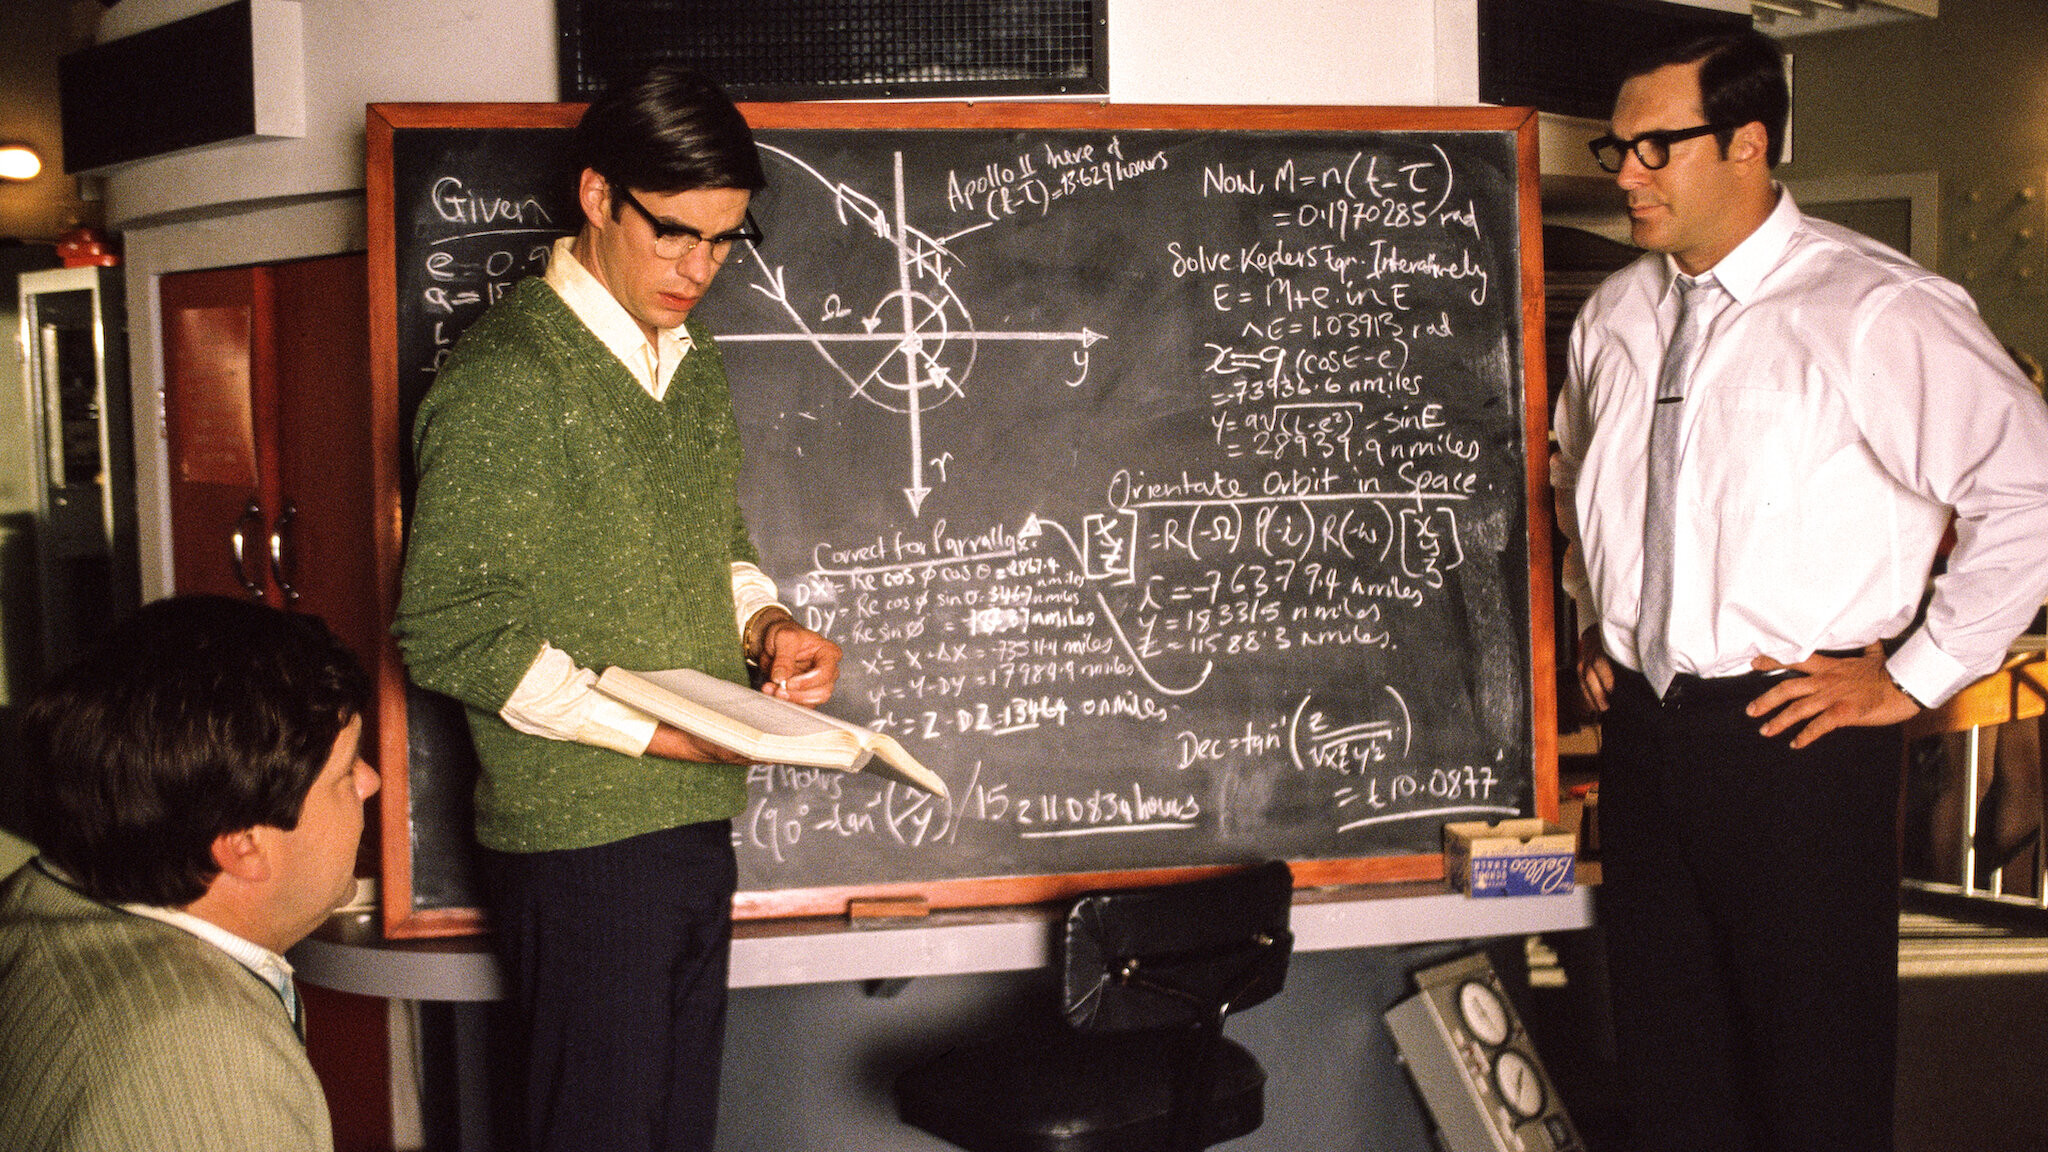 Given
e = 0.9
a = 15
Apollo 11 here @
(t-τ) = 13.629 hours
Ω
y
Now, M = n(t-τ)
= 0.1970285 rad
Solve Keplers Eqn. Interatively
E = M + e. in E
E = 1.03913 rad
x = a (cos E - e)
= -73936.6 nmiles
y = a√(1-e²) . sin E
= 28939.9 nmiles
Orientate Orbit in Space.
= R(-Ω) P(-i) R(-ω)
= -76379.4 nmiles
y = 19331.5 nmiles
z = 11588.3 nmiles.
Correct for Parrallax.
Dx = Re cos φ cos θ = 2867.4 nmiles
Dy = Re cos φ sin θ = 346.7 nmiles
= Re sin φ = nmiles
x' = X - ΔX = -73511.4 nmiles
y' = Y - DY = 17989.9 nmiles
z' = Z - DZ = 13464 nmiles
hours
= (90° - tan⁻¹(x/y)/15 = 11.0834 hours
Dec = tan⁻¹
= ±10.0877
Bellco